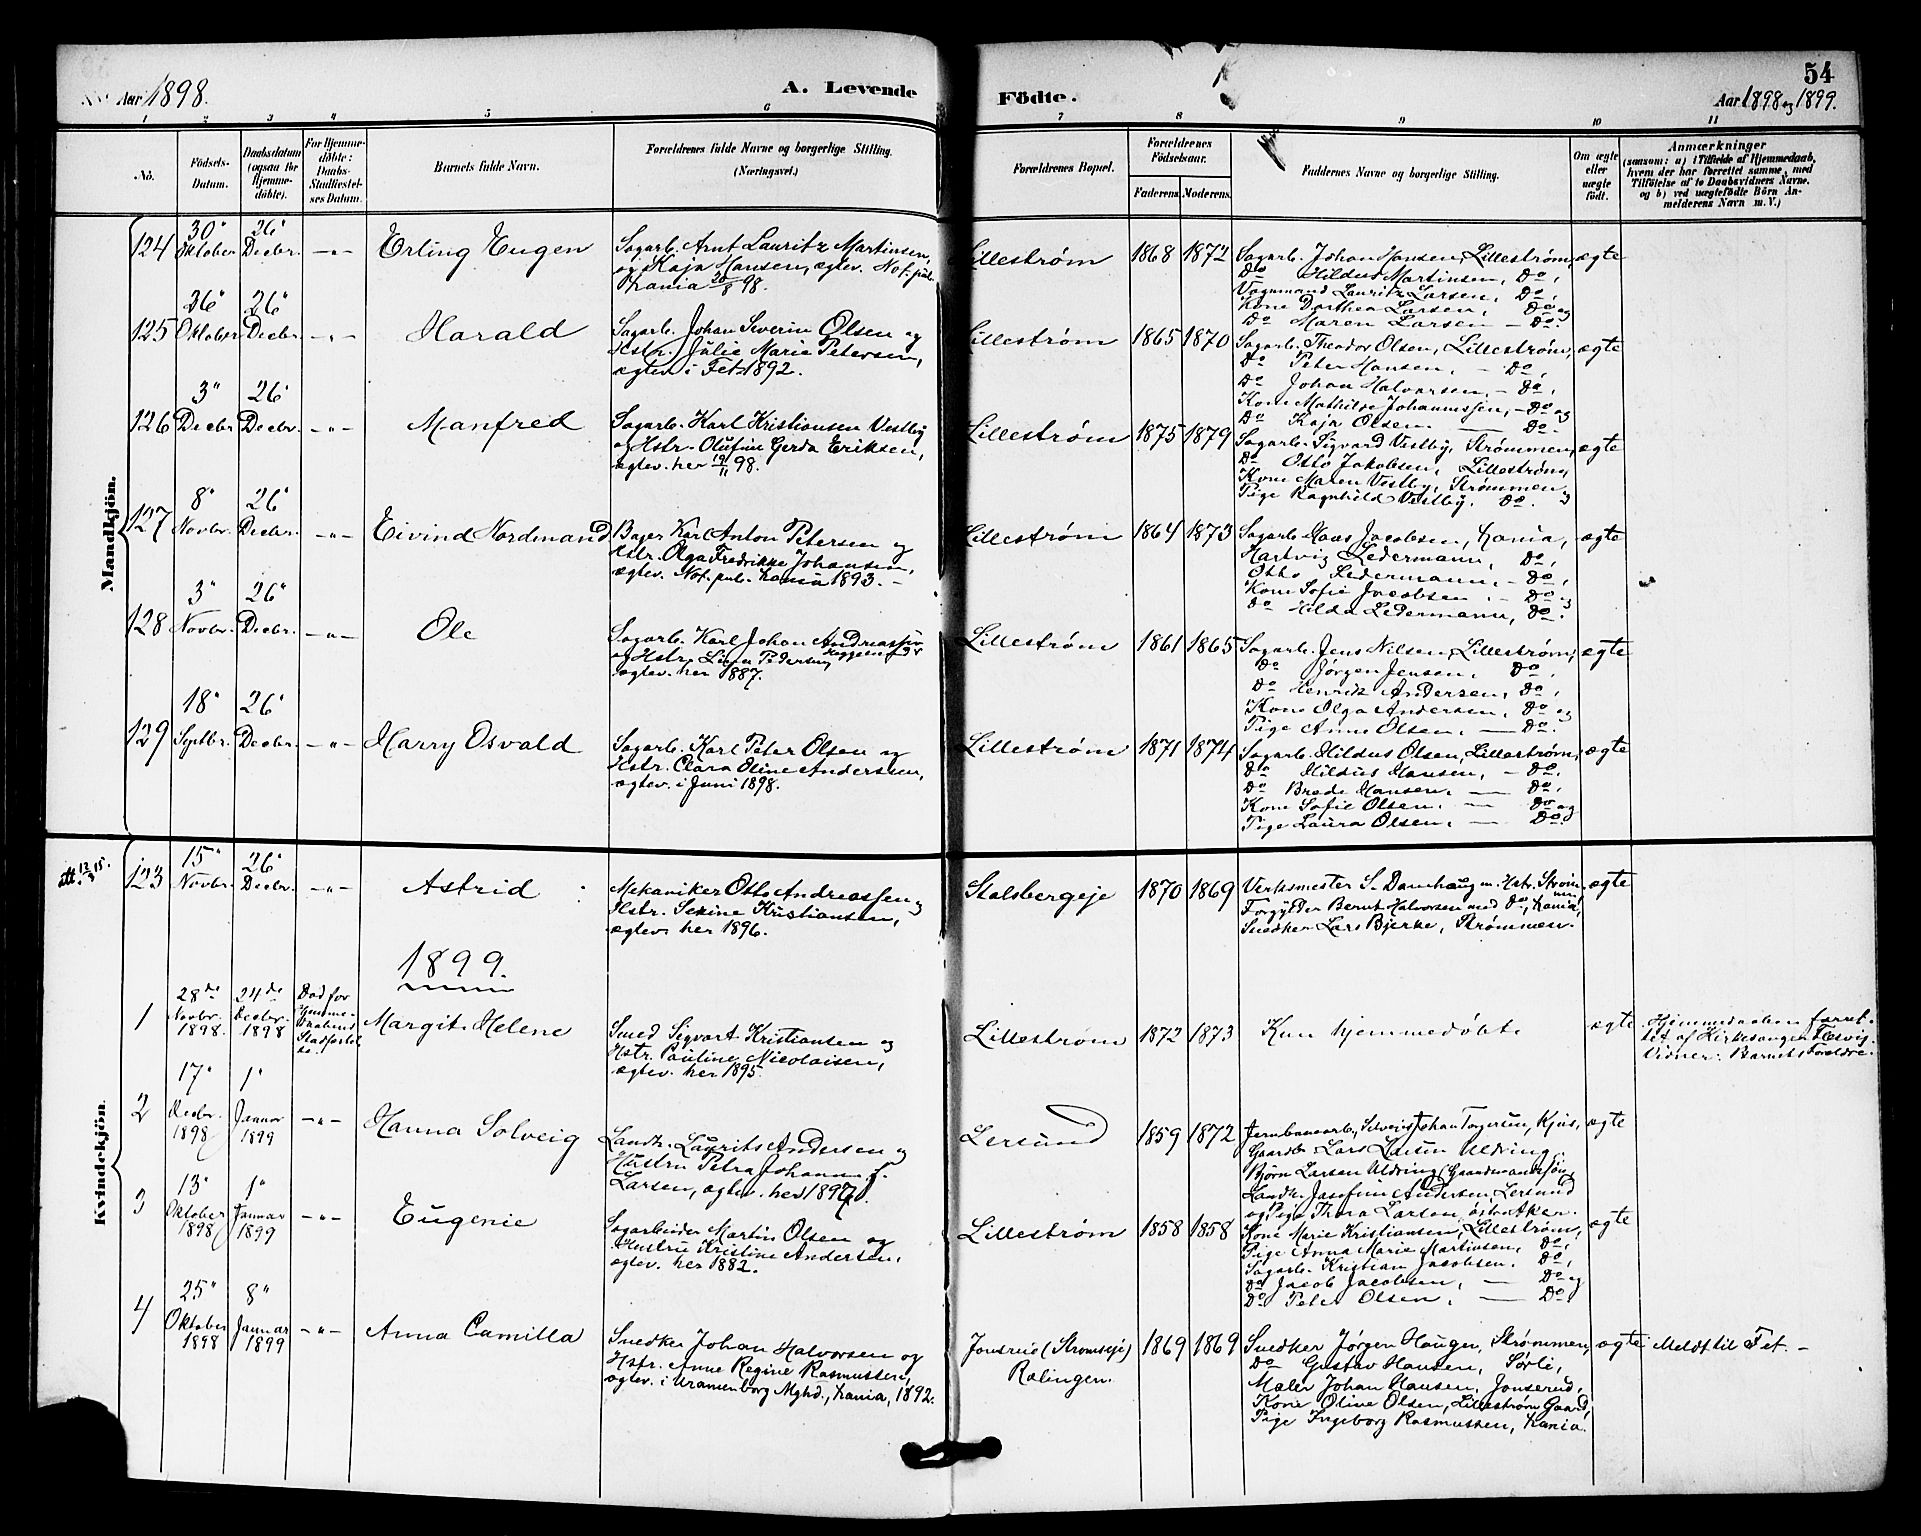 Aar 1898.
A. Levende
Födte.
54
Aar 1898 og 1899.
1 2 3 4 5 6 7 8 9 10 11
No.
Födsels-
Datum.
Daabsdatum
(ogsaa for
Hjemme-
döbte).
For Hjemme-
döbte:
Daabs-
Stadfæstel-
ses Datum.
Barnets fulde Navn.
Forældrenes fulde Navne og borgerlige Stilling.
(Næringsvei.)
Forældrenes Bopæl.
Forældrenes
Födselsaar.
Faderens Moderens
Faddernes Navne og borgerlige Stilling.
Om ægte
eller
uægte
födt.
Anmærkninger
(saasom: a) i Tilfælde af Hjemmedaab,
hvem der har forrettet samme, med
Tilföielse af to Daabsvidners Navne.
og b) ved uægtefödte Börn An-
melderens Navn m. V.)
Mandkjön.
124
30"
Oktober
26"
Decbr.
-"-
Erling Eugen
Sagarb. Arnt Lauritz Martinsen,
og Kaja Hansen, ægtev. Not. pub.
Kania 20/8 98.
Lillestrøm
1868 1872
Sagarb. Johan Hansen, Lillestrøm,
Do Hildus Martinsen, Do,
Vognmand Lauritz Larsen, Do,
Kone Dorthea Larsen, Do og
Do Maren Larsen - Do.
ægte
125
26"
Oktober
26"
Decbr.
-"-
Harald
Sagarb. Johan Severin Olsen og
Hstr. Julie Marie Petersen,
ægtev. i Fet 1892.
Lillestrøm
1865 1870
Sagarb. Theodor Olsen, Lillestrøm,
Do Peter Hansen, - Do,
Do Johan Halvorsen - Do,
Kone Mathilde Johannssen, - Do og
Do Kaja Olsen - Do.
ægte
126
3"
Decbr
26"
Decbr.
-"-
Manfred
Sagarb. Karl Kristiansen Vestby
og Hstr. Olufine Gerda Eriksen,
ægtev. her 19/11 98.
Lillestrøm
1875 1879
Sagarb. Sigvard Vestby, Strømmen,
Do Otto Jakobsen, Lillestrøm,
Kone Maren Vestby, Strømmen og
Pige Ragnhild Vestby, Do.
ægte
127
8"
Novbr.
26"
Decbr.
-"-
Eivind Nordmand
Bager Karl Anton Petersen og
Hstr. Olga Fredrikke Johansen,
ægtev. Not. pub. Kania 1893. -
Lillestrøm
1864 1873
Sagarb. Hans Jacobsen, Kania,
Hartvig Ledermann, Do,
Otto Ledermann, - Do,
Kone Sofie Jacobsen, - Do og
Do Hilda Ledermann, Do.
ægte
128
3"
Novbr.
26"
Decbr.
-"-
Ole
Sagarb. Karl Johan Andreassen
og Hstr. Lina Pedersen
ægtev. her 1887.
Lillestrøm
1861 1865
Sagarb. Jens Nilsen, Lillestrøm,
Do Jørgen Jensen, Do,
Do Henrik Andersen, Do,
Kone Olga Andersen, Do og
Pige Anne Olsen, - Do.
ægte
129
18"
Septbr.
26"
Decbr.
-"-
Harry Osvald
Sagarb. Karl Peter Olsen og
Hstr. Clara Oline Andersen,
ægtev. i Juni 1898.
Lillestrøm
1871 1874
Sagarb. Hildus Olsen, Lillestrøm,
Do Hildus Hansen, - Do,
Do Brede Hansen, - Do,
Kone Sofie Olsen, - Do og
Pige Laura Olsen, - Do.
ægte
Kvindekjön.
att. 12/3 15.
123
15"
Novbr.
26"
Decbr.
-"-
Astrid
Mekaniker Otto Andreassen og
Hstr. Sexine Kristiansen,
ægtev. her 1896.
Stalsbergeje
1870 1869
Verksmester S. Damhaug m. Hstr. Strøm-
men,
Forgylder Bernt Halvorsen med do, Kania,
Snedker Lars Bjerke, Strømmen.
ægte
1899.
1
28de
Novbr.
1898.
24de
Decbr.
1898
Død før
Hjemme-
daabens
Stadfæstel-
se.
Margit Helene
Smed Sigvart Kristiansen og
Hstr. Pauline Nicolaisen,
ægtev. her 1895.
Lillestrøm
1872 1873
Kun hjemmedøbt
ægte
Hjemmedaaben forret-
tet af Kirkesanger Flesvig
Vidner: Barnets Forældre.
2
17"
Decbr.
1898
1"
Januar
1899
-"-
Hanna Solveig
Landh. Laurits Andersen og
Hustru Petra Johanne
Larsen, ægtev. her 1897.
Lersund
1859 1872
Jernbanearb. Johan Togersen, Kjus,
Gaardb. Lars Larsen Uldring,
Bjørn Larsen Uldring (Gaardmandssøn,
Landh. Josefine Andersen, Lersund
og Pige Thora Larsen, østre Aker.
ægte
3
13"
Oktober
1898
1"
Januar
1899
-"-
Eugenie
Sagarbeider Martin Olsen og
Hustru Kristine Andersen,
ægtev. her 1882.
Lillestrøm
1858 1858
Kone Marie Kristiansen, Lillestrøm,
Pige Anna Marie Martinsen, Do,
Sagarb. Kristian Jacobsen, Do,
Do Jacob Jacobsen, - Do og
Do Peter Olsen, - Do.
ægte
4
25"
Oktober
1898
8"
Januar
1899
-"-
Anna Camilla
Snedker Johan Halvorsen og
Hstr. Anne Regine Rasmussen,
ægtev. i Uranienborg Mghd., Kania, 1892.
Jonsrud (Strømseje)
Rælingen.
1869 1869
Snedker Jørgen Hauger, Strømmen,
Do Gustav Hansen, Sørli,
Maler Johan Hansen, Jonserud,
Kone Olive Olsen, Lillestrøm Gaard,
Pige Ingeborg Rasmussen, Kania.
ægte
Meldt til Fet. -